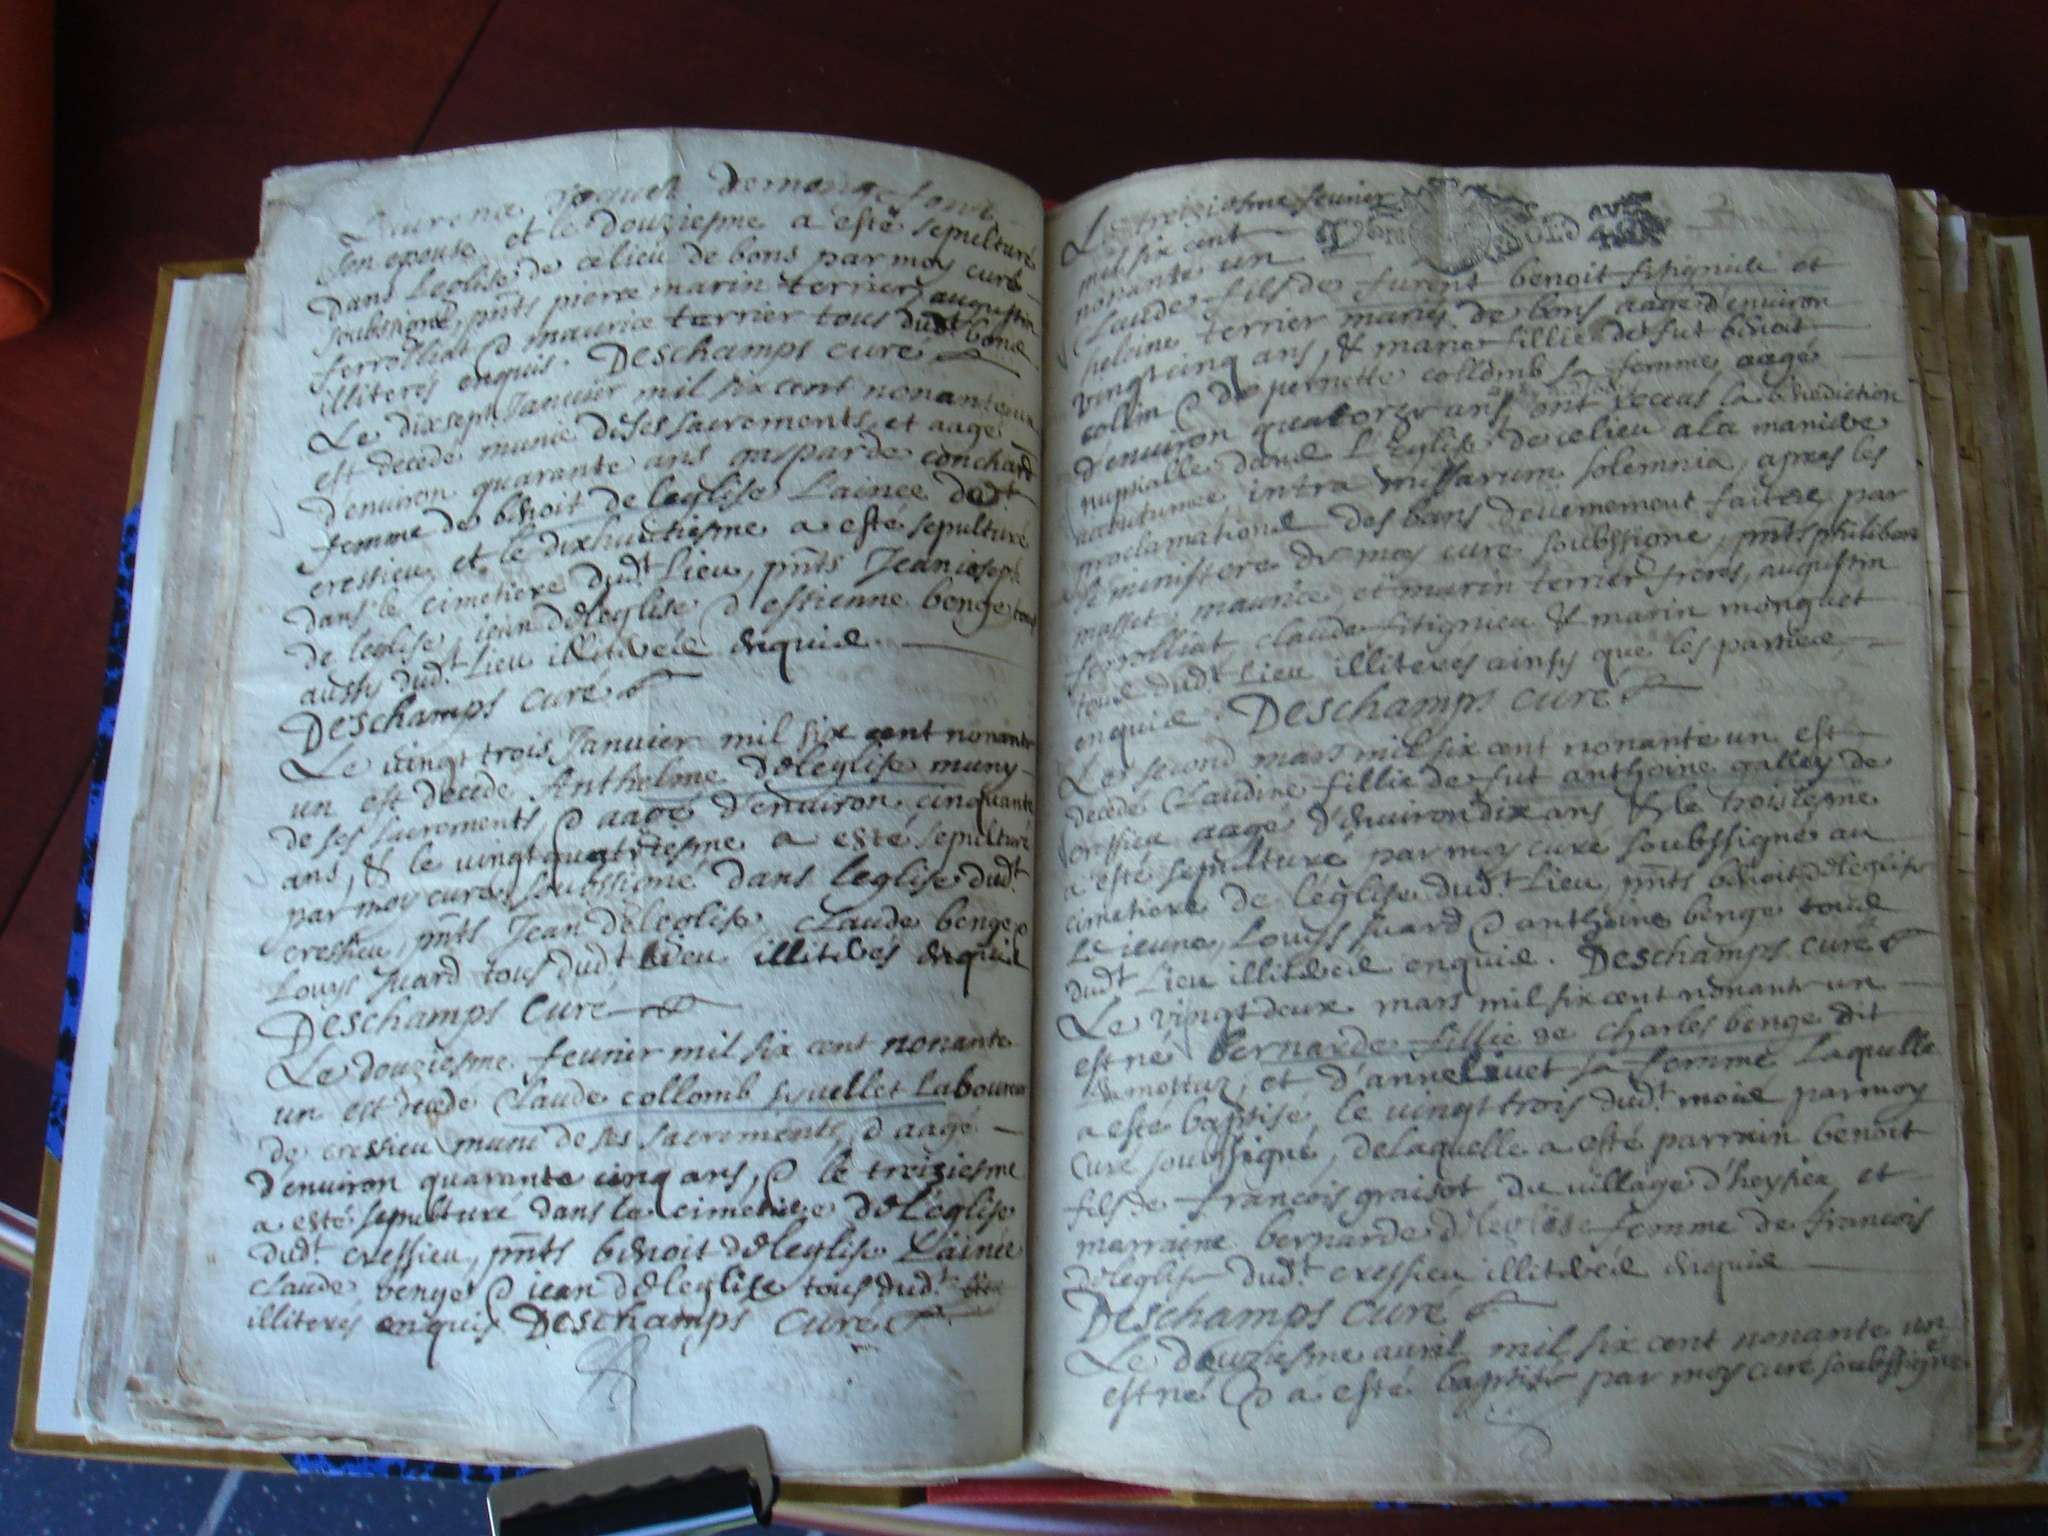 son epouse et le douziesme a esté sepulturé
dans l'eglise de ce lieu de bons par moy curé
soubssigné, pnts pierre marin terrier, augustin
ferrolliat & maurice terrier tous dudt bons
illiterés enquis. Deschamps curé
Le dixsept Janvier mil six cent nonante un
est decedé munie de ses sacrements et aagé
d'environ quarante ans gasparde conchard
femme de benoit de leglise Lainee dedt
cressieu, et le dixhuictiesme a esté sepulturé
dans le cimetiere dudt Lieu, pnts Jean ioseph
de leglise, iean deleglise & estienne benge tous
aussy dudt Lieu illiterés enquis
Deschamps curé
Le vingt trois Janvier mil six cent nonante
un est decedé Anthelme deleglise muny
de ses sacrements & aagé d'environ cinquante
ans, & le vingt quatriesme a esté sepulturé
par moy curé soubssigné dans leglise dudt
cressieu, pnts Jean deleglise, claude benge &
Louys Juard tous dudt Lieu illiterés enquis
Deschamps Curé
Le douziesme feurier mil six cent nonante
un est decedé Claude collomb Laboureur
de cressieu muni de ses sacrements, & aagé
d'environ quarante cinq ans, & le treiziesme
a esté sepulturé dans le cimetiere de l'eglise
dudt cressieu, pnts benoit deleglise Lainée
claude benge & iean deleglise tous dudt
illiterés enquis Deschamps Curé
2
Le treiziesme feurier
mil six cent
nonante un
Claude fils de furent benoit fitignieu et
heleine terrier mariés de bons aagé d'environ
vingt cinq ans, & marie fillie de fut benoit
collin & de pernette collomb sa femme aagé
d'environ quatorze ans ont receus la benediction
nuptialle dans L'Eglise de ce lieu a la maniere
accoutumée intra missarum solemnia, apres les
proclamations des bans deuement faites, par
le ministere de moy curé soubssigné, pnts philibert
masset, maurice, et marin terrier freres, augustin
ferrolliat, claude fitignieu & marin monquet
tous dudt Lieu illiterés ainsy que les parties
enquis. Deschamps curé
Le second mars mil six cent nonante un est
decedé Claudine fillie de fut anthoine galley de
cressieu aagé d'environ dix ans & le troisiesme
a esté sepulturé par moy curé soubssigné au
cimetiere de l'eglise dudt Lieu, pnts benoit deleglise
Le ieune, Louys Juard & anthoine benge tous
dudt Lieu illiterés enquis. Deschamps curé
Le vingt deux mars mil six cent nonante un
est né bernarde fillie de Charles benge dit
mottaz, et d'anne Livet sa femme Laquelle
a esté baptisé, le vingt trois dudt mois par moy
Curé soubssigné, de laquelle a esté parrain benoit
fils de francois graisot du village d'heyrieu, et
marraine bernarde d'leglise femme de francois
deleglise dudt cressieu, illiterés enquis
Deschamps curé
Le douziesme auril mil six cent nonante un
est né & a esté baptisé par moy curé soubssigné